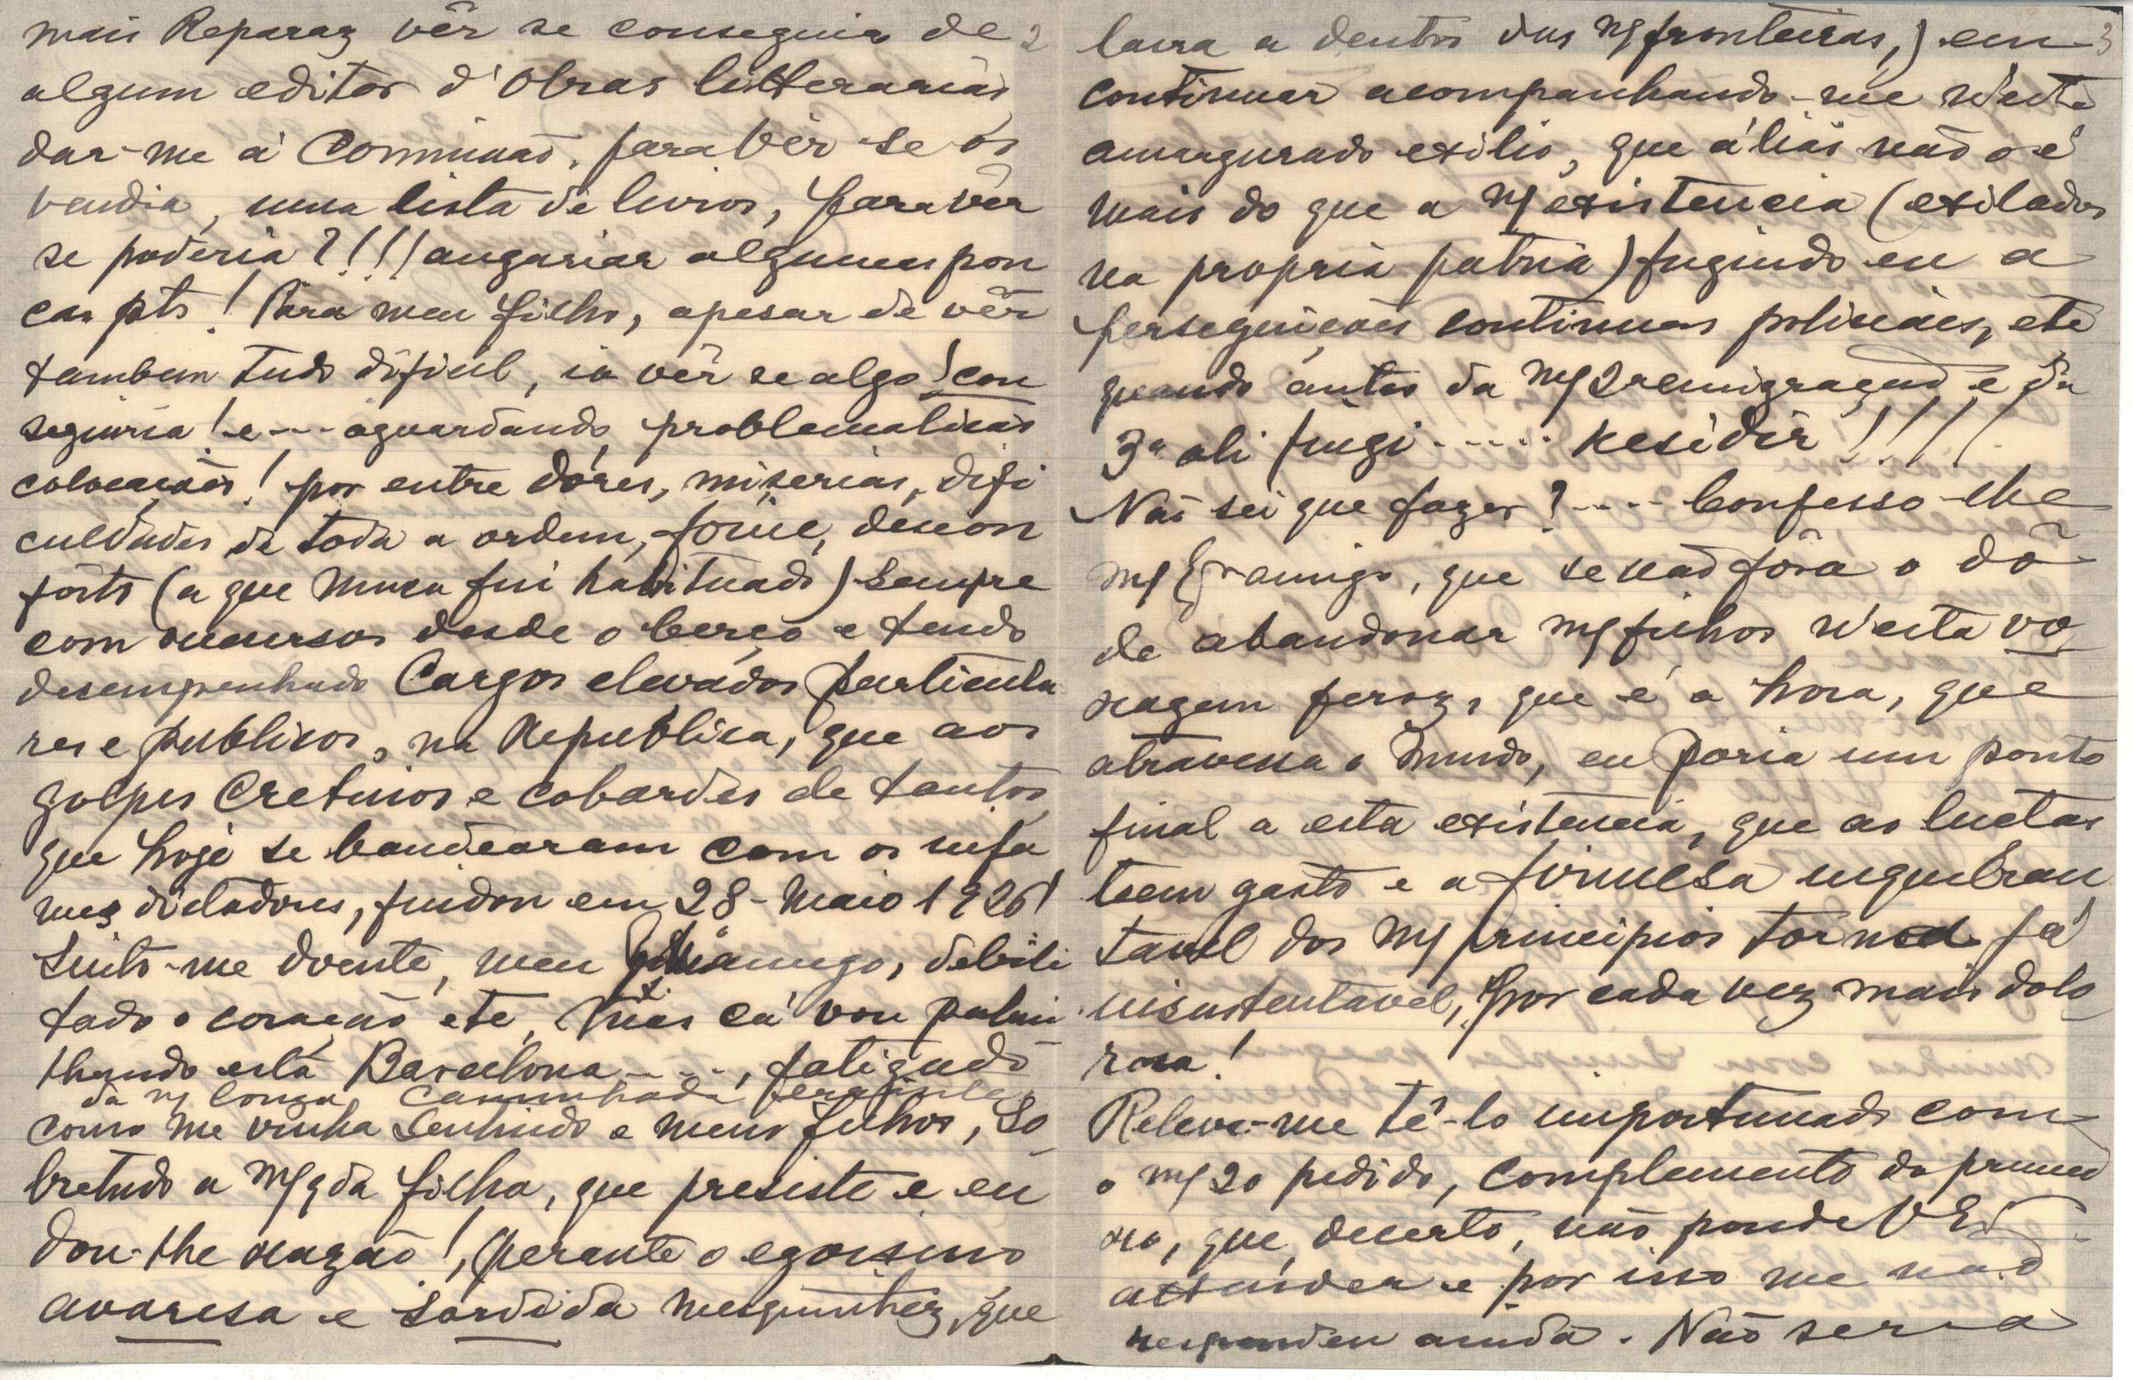 mais Reparaz vêr se conseguia de 2
algum editor d'obras litterarias
dar-me á Commissão, para vêr se os
vendia, uma lista de livros, para vêr
se poderia?!!! angariar algumas pou
cas pts! Para meu filho, apesar de vêr
tambem tudo dificil, ia vêr se algo! con
seguiria! e --- aguardando, problematicas
colocações! por entre dôres, miserias, difi
culdades de toda a ordem, fome, descon
forto (a que nunca fui habituado) sempre
com recursos desde o berço e tendo
desempenhado Cargos elevados particula
res e publicos, na Republica, que aos
golpes cretinos e cobardes de tantos
que hoje se bandearam com os infa
mes dictadores, findou em 28-Maio 1926!
Sinto-me doente, meu amigo, debili
tado o coração etc, mas cá vou palmi
lhando esta Barcelona ---, fatigado
da mª longa caminhada
como me vinha sentindo e meus filhos, so
bretudo a mª qda filha, que presiste e eu
dou-lhe razão!, perante o egoismo
avaresa e sordida mesquinhez, que
lavra a dentro das nªs fronteiras,) em 3
continuar acompanhando-me n'este
amargurado exilio, que áliás não o é
mais do que a nª existencia (exilados
na propria patria) fugindo eu a
perseguições continuas policiaes, etc
quando antes da mª 2ª emigração e da
3ª ali fingi ..... residir!!!!
Não sei que fazer? .... Confesso-lhe
mº Exº amigo, que se não fôra o dó
de abandonar mºs filhos n'esta vo
ragem feroz, que é a hora, que
atravessa o Mundo, eu poria um ponto
final a esta existencia, que as luctas
teem gasto e a firmesa inquebran
tavel dos mºs principios torna já
insustentavel, por cada vez mais dolo
rosa!
Releve-me tê-lo importunado com
o mº 2º pedido, complemento do primei
ro, que, decerto, não poude V Eª
attender e por isso me não
respondeu ainda. Não seria